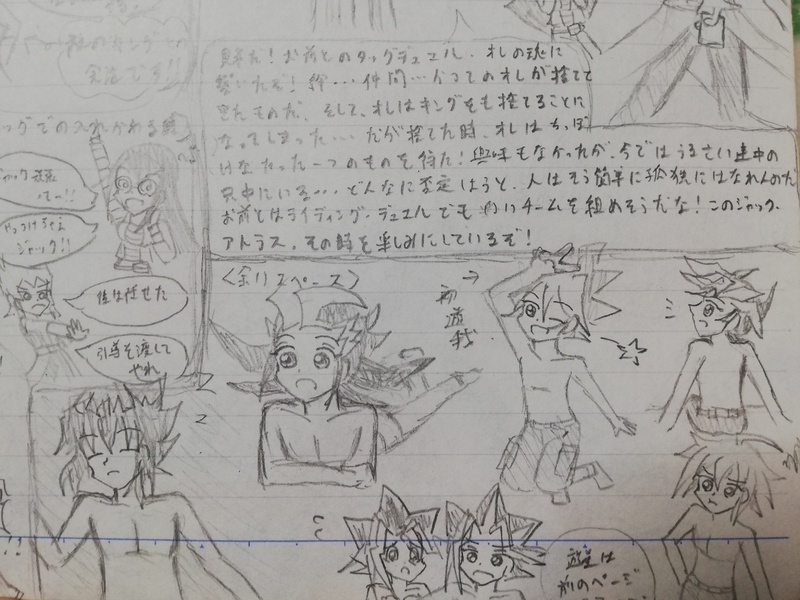 実況です!!
見事だ！お前とのタッグデュエル、オレの魂に
響いたぞ！絆…仲間…かつてのオレが捨てて
きたものだ。そして、オレはキングをも捨てることに
なってしまった…だが捨てた時、オレはちっぽ
けなたった一つのものを得た！興味もなかったが、今ではうるさい連中の
只中にいる…どんなに否定しようと、人はそう簡単に孤独にはなれんのだ
お前とはライディング・デュエルでも良いチームを組めそうだな！このジャック・
アトラス、その時を楽しみにしているぞ！
やっつけちゃえ
ジャック!!
後は任せた
引導を渡して
やれ
〈余りスペース〉
初遊我
→
遊星は
前のページ